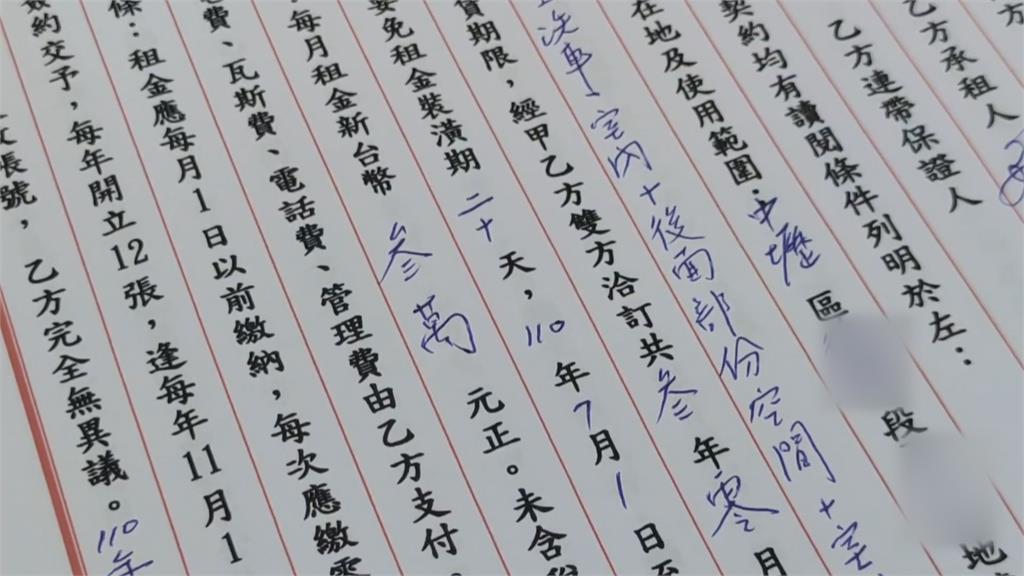 方
乙方承租人
乙方連帶保證人
契約均有讀閱條件列明於左：
在地及使用範圍·中壢區 段 地
洗車 室內＋後面部份空間＋室
賃期限，經甲乙方雙方洽訂共叁年零月
要免租金裝潢期二十天，110年7月1日至
：每月租金新台幣叁萬元正。未含稅
費、瓦斯費、電話費、管理費由乙方支付。
條：租金應每月1日以前繳納，每次應繳
簽約交予，每年開立12張，逢每年11月1
張號，乙方完全無異議。110年